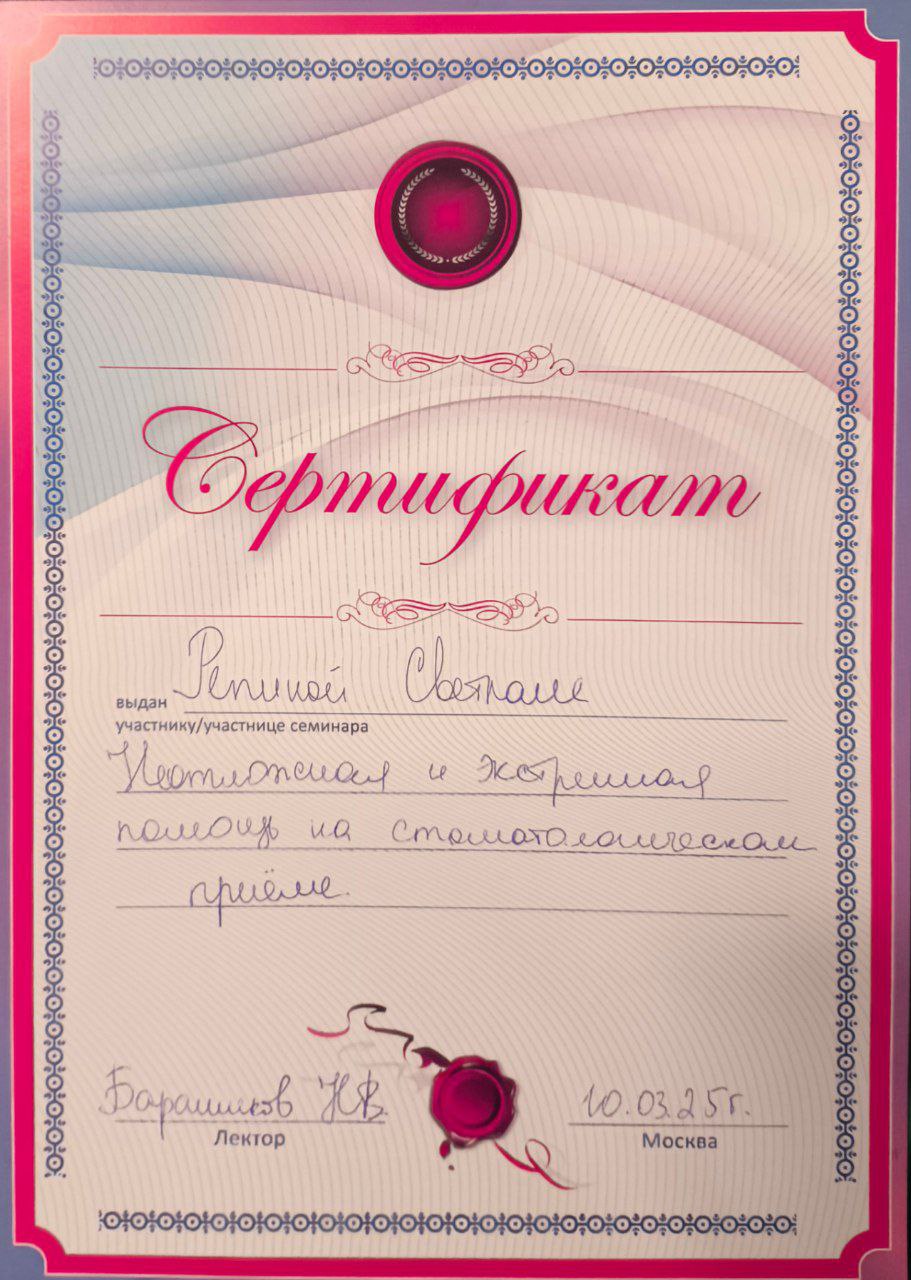 Сертификат
выдан Репиной Светлане
участнику/участнице семинара
Неотложная и экстренная
помощь на стоматологическом
приёме.
Барашиков Н.В. 10.03.25г.
Лектор Москва